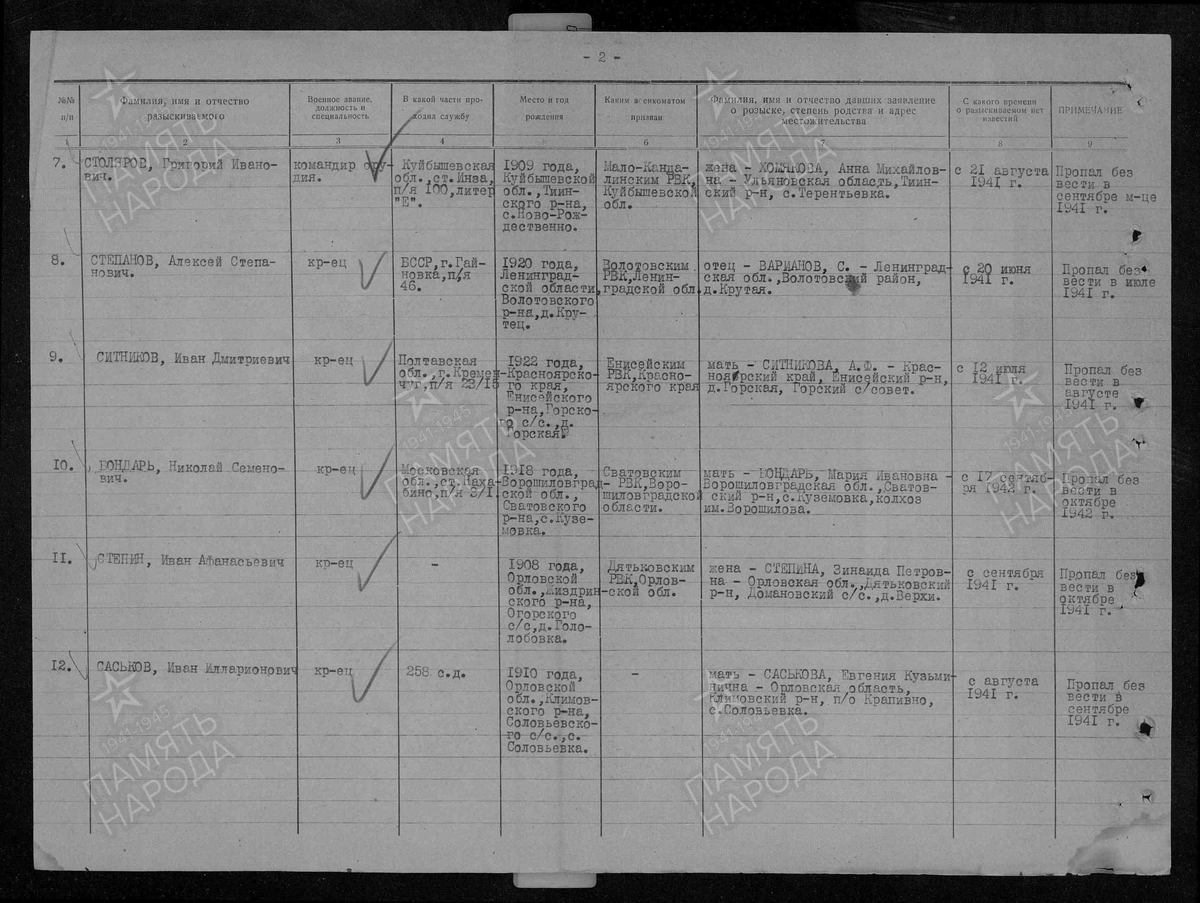 - 2 -
№№ п/п
Фамилия, имя и отчество
разыскиваемого
Военное звание,
должность и
специальность
В какой части про-
ходил службу
Место и год
рождения
Каким военкоматом
призван
Фамилия, имя и отчество давших заявление
о розыске, степень родства и адрес
местожительства
С какого времени
о разыскиваемом нет
известий
ПРИМЕЧАНИЕ
2
3
4
6
7
8
9
7.
СТОЛЯРОВ, Григорий Ивано-
вич.
командир ору-
дия.
Куйбышевская
обл.,ст.Инва,
п/я 100,литер
"Е".
1909 года,
Куйбышевской
обл.,Тиин-
ского р-на,
с.Ново-Рож-
дественно.
Мало-Канда-
линским РВК,
Куйбышевской
обл.
жена - ХОМЯКОВА, Анна Михайлов-
на - Ульяновская область,Тиин-
ский р-н, с.Терентьевка.
с 21 августа
1941 г.
Пропал без
вести в
сентябре м-це
1941 г.
8.
СТЕПАНОВ, Алексей Степа-
нович.
кр-ец
БССР,г.Гай-
новка,п/я
46.
1920 года,
Ленинград-
ской области,
Волотовского
р-на,д.Кру-
тец.
Волотовским
РВК,Ленин-
градской обл.
отец - ВАРИАНОВ, С. - Ленинград-
ская обл.,Волотовский район,
д.Крутая.
с 20 июня
1941 г.
Пропал без
вести в июле
1941 г.
9.
СИТНИКОВ, Иван Дмитриевич
кр-ец
Полтавская
обл.,г.Кремен-
чуг,п/я 23/15
1922 года,
Красноярско-
го края,
Енисейского
р-на,Горско-
го с/с.,д.
Горская.
Енисейским
РВК,Красно-
ярского края
мать - СИТНИКОВА, А.Ф. - Крас-
ноярский край, Енисейский р-н,
д.Горская, Горский с/совет.
с 12 июля
1941 г.
Пропал без
вести в
августе
1941 г.
10.
БОНДАРЬ, Николай Семено-
вич.
кр-ец
Московская
обл.,ст.Наха-
бино,п/я 3/1.
1918 года,
Ворошиловград-
ской обл.,
Сватовского
р-на,с.Кузе-
мовка.
Сватовским
РВК,Воро-
шиловградской
области.
мать - БОНДАРЬ, Мария Ивановна -
Ворошиловградская обл.,Сватов-
ский р-н,с.Куземовка,колхоз
им.Ворошилова.
с 17 сентяб-
ря 1942 г.
Пропал без
вести в
октябре
1942 г.
11.
СТЕПИН, Иван Афанасьевич
кр-ец
-
1908 года,
Орловской
обл.,Жиздрин-
ского р-на,
Огорского
с/с,д.Голо-
лобовка.
Дятьковским
РВК,Орлов-
ской обл.
жена - СТЕПИНА, Зинаида Петров-
на - Орловская обл.,Дятьковский
р-н, Домановский с/с.,д.Верхи.
с сентября
1941 г.
Пропал без
вести в
октябре
1941 г.
12.
САСЬКОВ, Иван Илларионович
кр-ец
258 с.д.
1910 года,
Орловской
обл.,Климов-
ского р-на,
Соловьевско-
го с/с.,с.
Соловьевка.
-
мать - САСЬКОВА, Евгения Кузьми-
нична - Орловская область,
Климовский р-н, п/о Крапивно,
с.Соловьевка.
с августа
1941 г.
Пропал без
вести в
сентябре
1941 г.
1941 1945
ПАМЯТЬ
НАРОДА